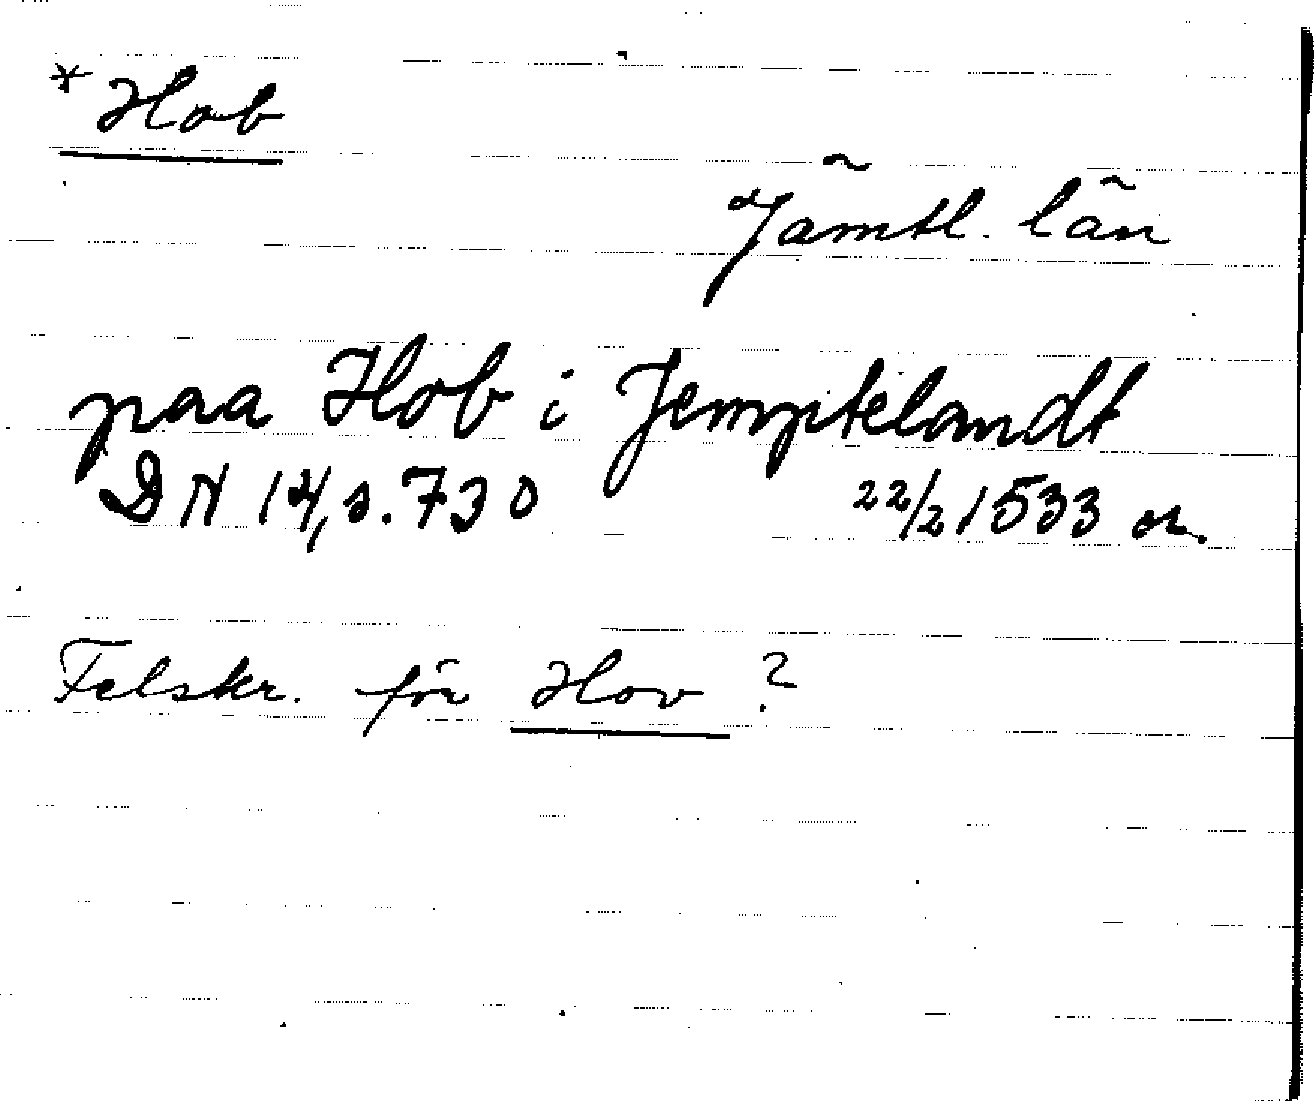 *Hob
Jämtl. län
paa Hob i Jemptelandt
DN 14, s. 730 22/2 1533 or.
Felskr. för Hov ?